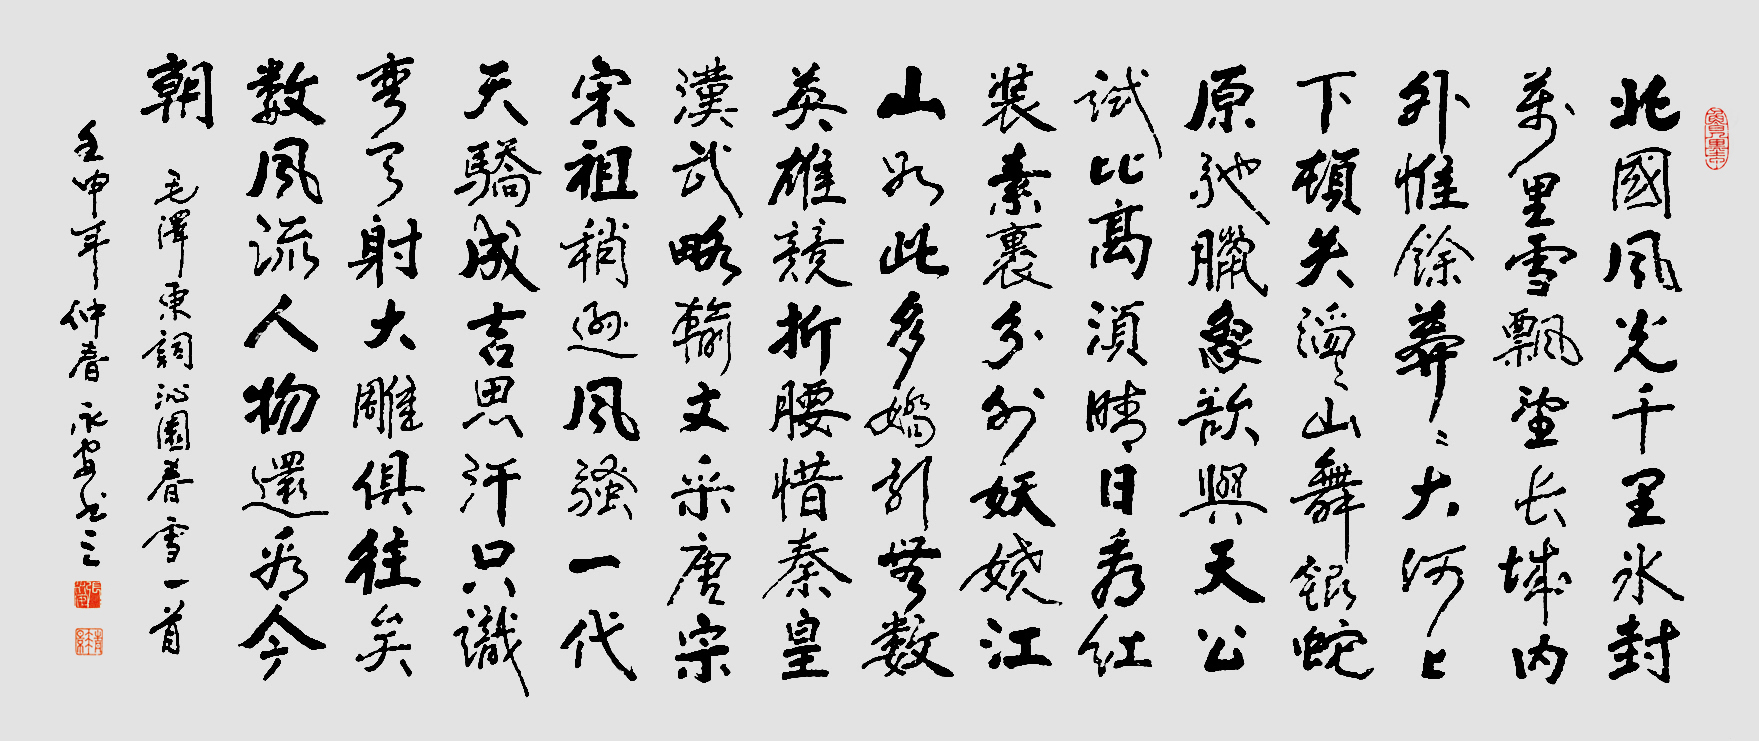 北國風光千里冰封
萬里雪飄望长城内
外惟餘莽〻大河上
下頓失滔〻山舞銀蛇
原馳臘象欲與天公
試比高須晴日看紅
裝素裹分外妖嬈江
山如此多嬌引無数
英雄競折腰惜秦皇
漢武略輸文采唐宗
宋祖稍遜風騷一代
天驕成吉思汗只識
弯弓射大雕俱往矣
数風流人物還看今
朝
毛澤東詞沁園春雪一首
壬申年仲春